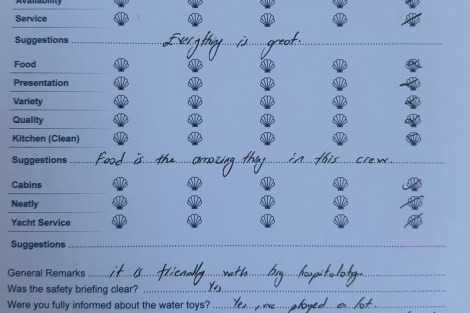 Availability
Service
Suggestions Everything is great.
Food
Presentation
Variety
Quality
Kitchen (Clean)
Suggestions Food is the amazing they in this crew.
Cabins
Neatly
Yacht Service
Suggestions
General Remarks it is friendly with big hospitality.
Was the safety briefing clear? Yes
Were you fully informed about the water toys? Yes, we played a lot.